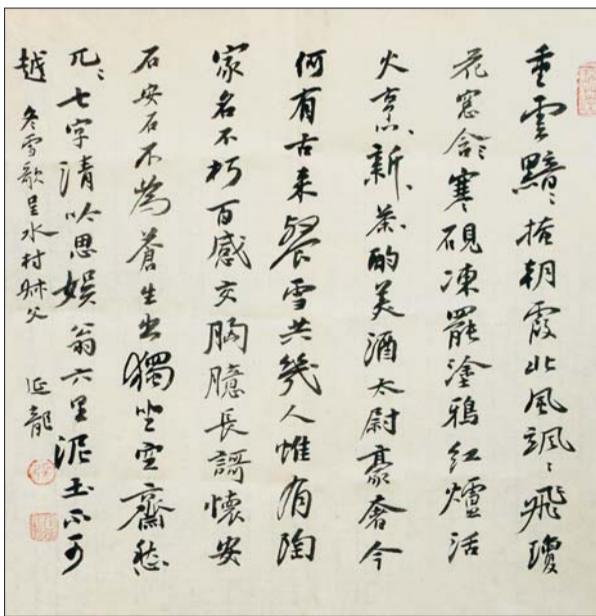 重雲黯〻掩朝霞北風颯〻飛瓊
花窓含〻寒硯凍罷塗鴉紅爐活
火烹新茶酌美酒太尉豪奢今
何有古来餐雪共幾人惟有陶
家名不朽百感交胸臆長謌懷安
石安石不為蒼生出獨坐空齋愁
兀〻七字清吟思娛翁六里泥土不可
越 冬雪歌呈水村 父
延龍